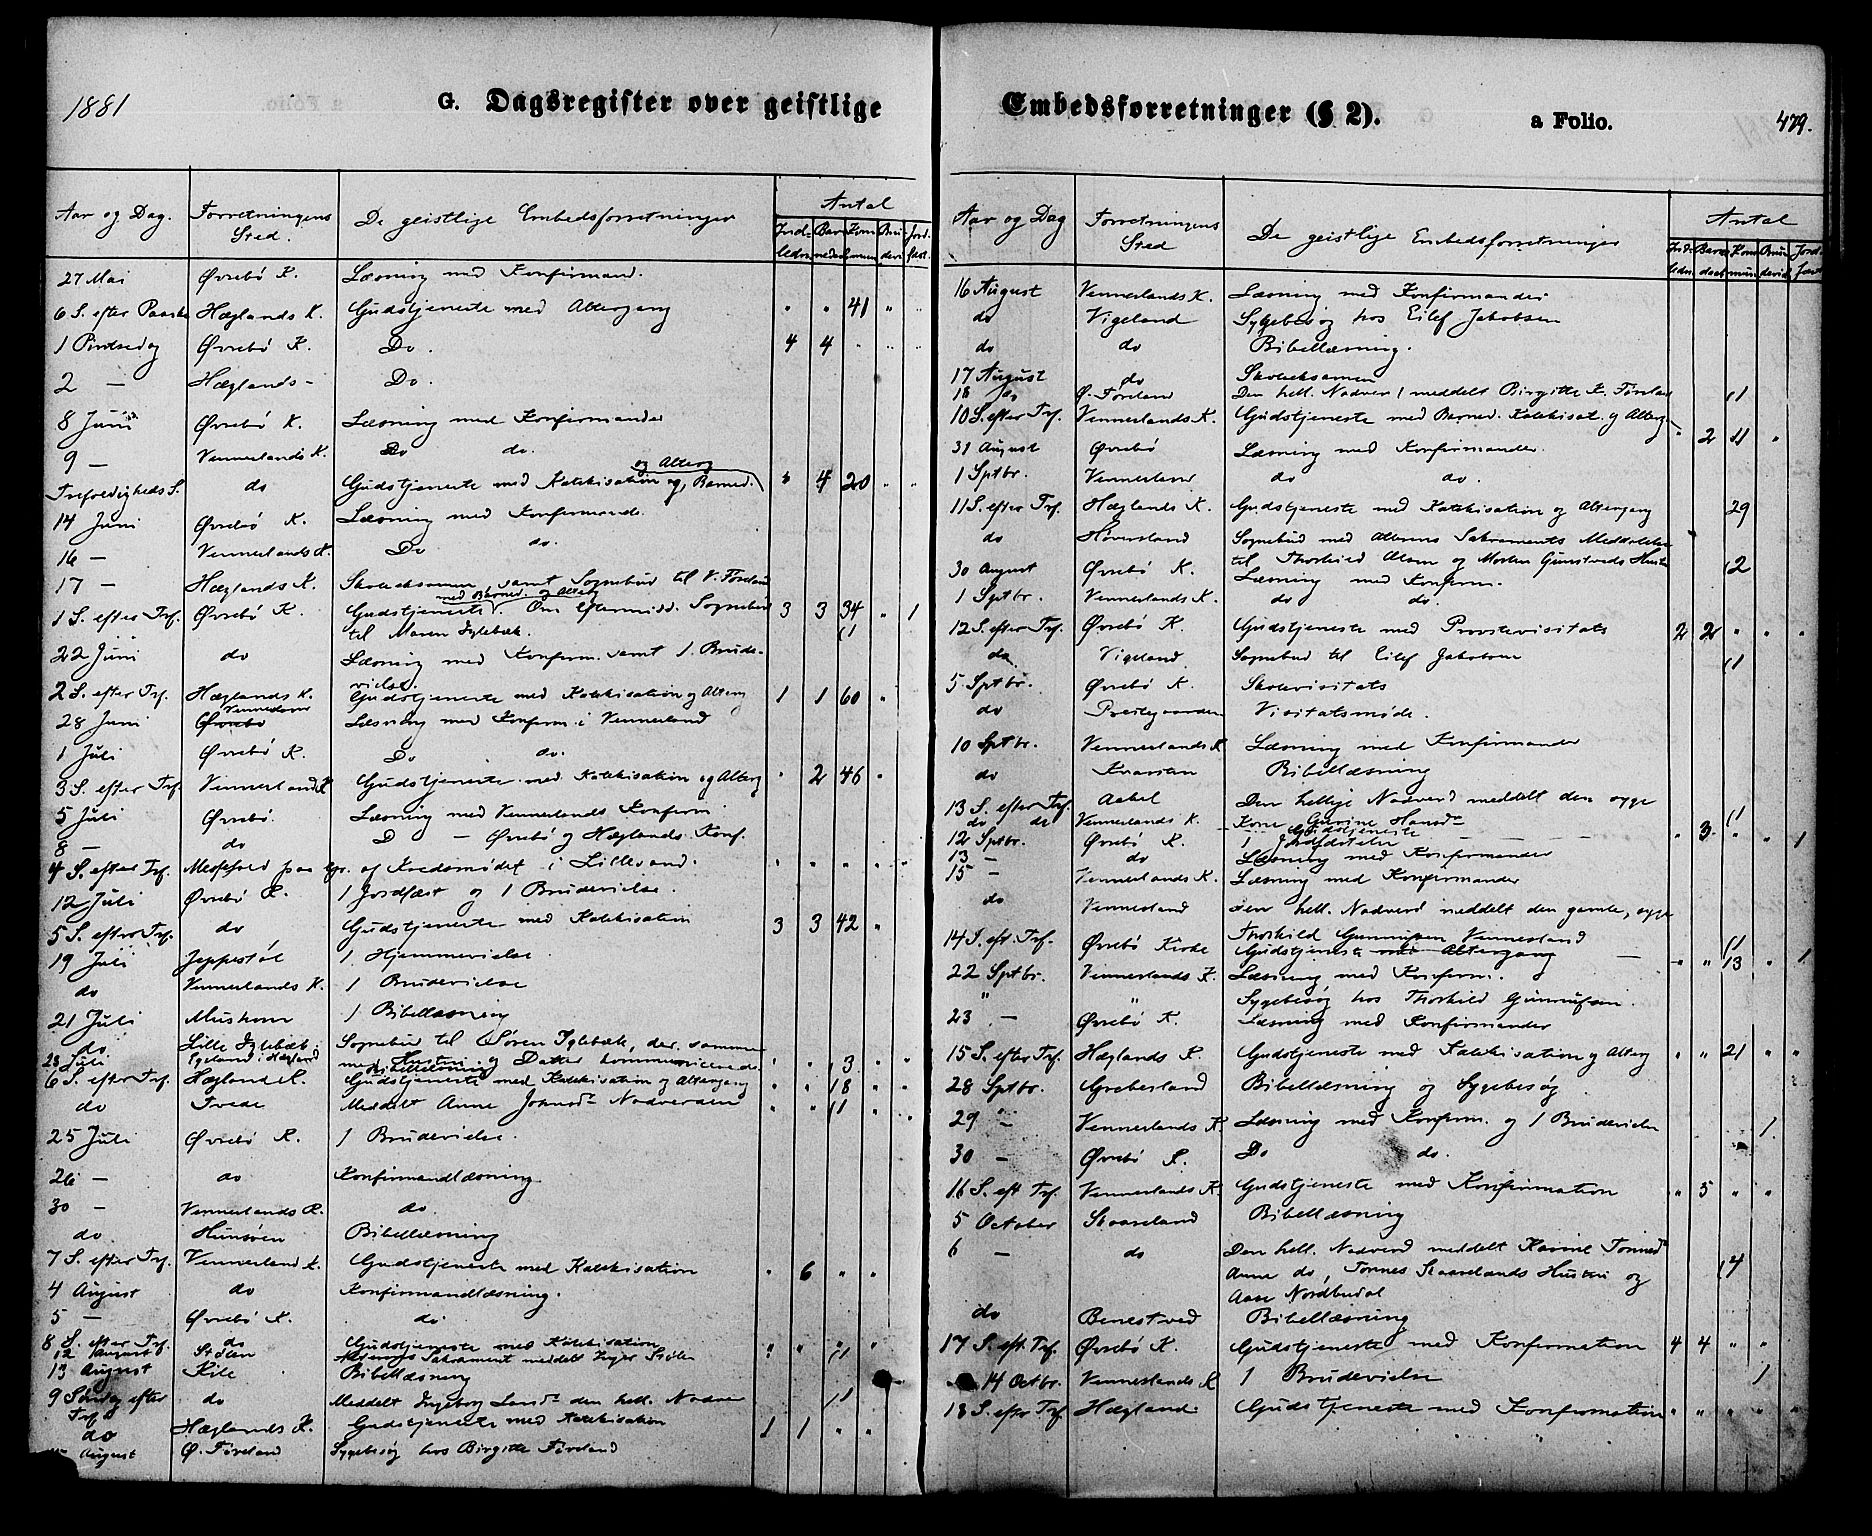 1881
G. Dagsregister over geistlige
Aar og Dag. Forretningens Sted. De geistlige Embedsforretninger Antal
27 Mai Øvrebø K. Læsning med Konfirmand.
6 S. efter Paaske Hæglands K. Gudstjeneste med Altergang " " 41 " "
1 Pintsedag Øvrebø K. Do. 4 4 " " "
2 — Hæglands - Do.
8 Juni Øvrebø K. Læsning med Konfirmander
9 — Vennerlands K. Do do.
og Alterg
Trefoldigheds S. do Gudstjeneste med Katekisation og Barned. " 4 20 " "
14 Juni Øvrebø K. Læsning med Konfirmand.
16 — Vennerlands K. Do do.
17 — Hæglands K. Skoleeksamen samt Sognebud til V. Føreland
med Barned. og Alterg
1 S. efter Trf. Øvrebø K. Gudstjeneste. Om eftermidd. Sognebud 3 3 34 " 1
til Maren Iglebæk. (1
22 Juni do Læsning med Konfirm. samt 1 Brude-
vielse.
2 S. efter Trf. Hæglands K. Gudstjeneste med Katekisation og Alterg 1 1 60 "
28 Juni Øvrebø Læsning med Konfirm. i Vennerland
1 Juli Øvrebø K. Do do.
3 S. efter Trf. Vennerlands K Gudstjeneste med Katekisation og Alterg " 2 46 "
5 Juli Øvrebø. Læsning med Vennerlands Konfirm
8 — do D — Øvrebø og Hæglands Konf.
4 S. efter Trf. Messefald paa Gr. af Kredsmødet i Lillesand. " " " " "
12 Juli Øvrebø K. 1 Jordfæst og 1 Brudevielse.
5 S. efter Trf. do Gudstjeneste med Katekisation 3 3 42 "
19 Juli Jeppestøl 1 Hjemmevielse
do Vennerlands K. 1 Brudevielse
21 Juli Mushom 1 Bibellæsning
do Lille Iglebæk Sognebud til Søren Iglebæk, der sammen
med Hustru og Datter kommunicerede " " 3 " "
23 Juli Egeland i Hægland Bibellæsning
6 S. efter Trf. Hægland K. Gudstjeneste med Katekisation og Altergang " " 18 " "
do Tvede Meddelt Anne Johnsd. Nadveren " " (1 " "
25 Juli Øvrebø K. 1 Brudevielse.
26 — do Konfirmandlæsning
30 — Vennerlands K. do.
do Hunsøen Bibellæsning
7 S. efter Trf. Vennerland K. Gudstjeneste med Katekisation " 6 " "
4 August do Konfirmandlæsning.
5 — Øvrebø K. do.
8 S. efter Trf. do Gudstjeneste med Katekisation " " " "
12 August Stølen Alterens Sakrament meddelt Inger Stølen (1
13 August Kile Bibellæsning
9 Søndag efter Trf. do Meddelt Ingeborg den hell. Nadver (1
do Hæglands K. Gudstjeneste med Katekisation 1 1 " "
August Ø. Føreland Sygebesøg hos Birgitte Føreland
Embedsforretninger (§ 2).
a Folio.
479.
Aar og Dag Forretningens Sted De geistlige Embedsforretninger Antal
16 August Vennerlands K. Læsning med Konfirmander
do Vigeland Sygebesøg hos Eilef Jakobsen
do do Bibellæsning.
17 August do Skoleeksamen
18 do Ø. Føreland Den hell. Nadver meddelt Birgitte K. Føreland (1
10 S. efter Trf. Vennerlands K. Gudstjeneste med Barned. Katekisat. og Alterg. " 2 11 "
31 August Øvrebø Læsning med Konfirmander.
1 Sptbr. Vennerland do do.
11 S. efter Trf. Hæglands K. Gudstjeneste med Katekisation og Altergang 29
do Sognebud med Alterens Sakraments Meddelelse
til Thorkild Olsen og Morten Gunstveds Hustru (2
30 August Øvrebø K. Læsning med Konfirm.
1 Sptbr. Vennerlands K. do do.
12 S. efter Trf. Øvrebø K. Gudstjeneste med Provstevisitats 2 2 " " "
do Vigeland Sognebud til Eilef Jakobsen (1
5 Sptbr. Øvrebø K. Skolevisitats
do Prestegaarden Visitatsmøde.
10 Sptbr. Vennerlands K Læsning med Konfirmander
do Kvarsten Bibellæsning
13 S. efter Trf. Aabel Den hellige Nadverd meddelt den syge
Kone Gurine Hansd. (1
do do Vennerlands K. Gudstjeneste " 3 " " 1
12 Sptbr. Øvrebø K. 1 Jordfæstelse
13 — do Læsning med Konfirmander
15 — Vennerlands K. Læsning med Konfirmander
do Vennesland den hell. Nadverd meddelt den gamle, syge
Thorkild Gunnufsen Vennesland (1
14 S. eft. Trf. Øvrebø Kirke Gudstjeneste med Altergang — " " 13 " 1
22 Sptbr. Vennerlands K. Læsning med Konfirm.
" " Sygebesøg hos Thorkild Gunnufsen.
23 — Øvrebø K. Læsning med Konfirmander
15 S. efter Trf. Hæglands K. Gudstjeneste med Katekisation og Alterg " " 21 " "
28 Sptbr. Grebesland Bibellæsning og Sygebesøg
29 " Vennerlands K Læsning med Konfirm. og 1 Brudevielse 1
30 — Øvrebø K. Do do.
16 S. eft Trf. Vennerlands K. Gudstjeneste med Konfirmation " 5 " "
5 October Skaareland Bibellæsning
6 — do Den hell. Nadverd meddelt Karine Tomined.
Anne do, Tomes Skaarelands Hustru og (4
Aase Nordbudal
do Benestved Bibellæsning
17 S. eft. Trf. Øvrebø K. Gudstjeneste med Konfirmation 4 4 " "
14 Octbr. Vennerlands K 1 Brudevielse 1
18 S. efter Trf. Hægland. Gudstjeneste med Konfirmation " " " " "